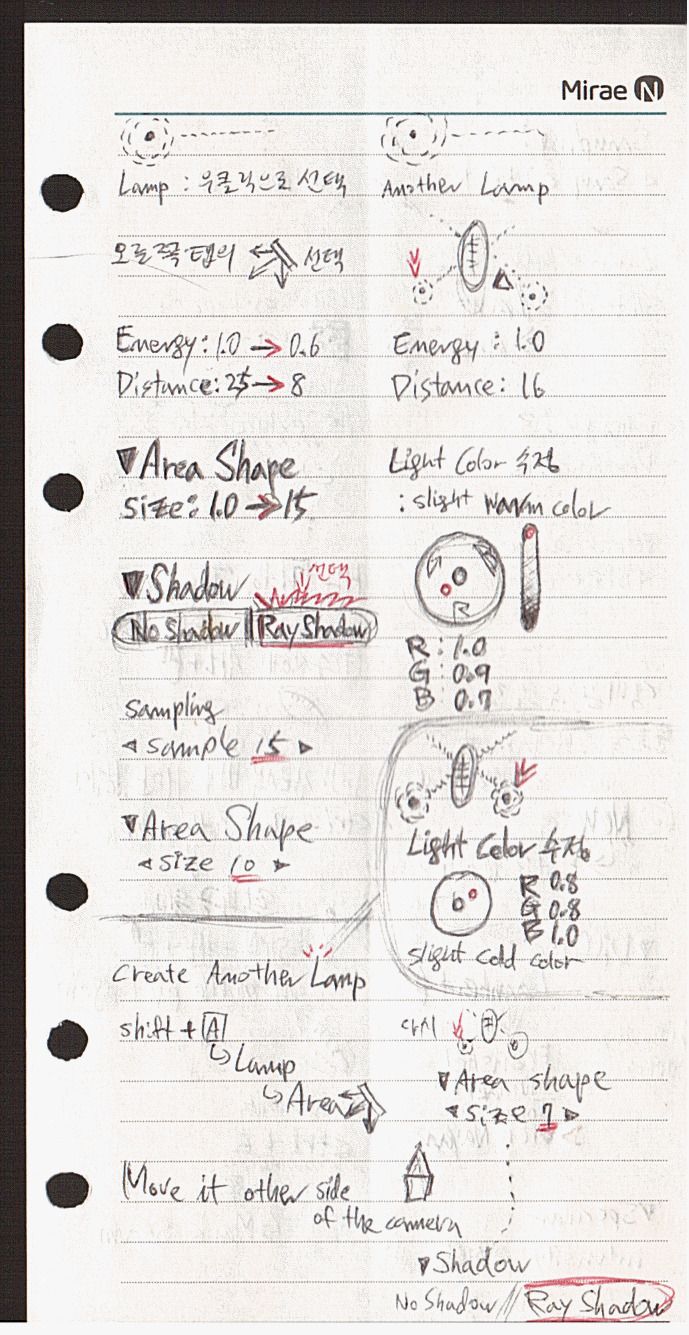 Mirae N
Lamp : 우클릭으로 선택
오른쪽 탭의 선택
Energy : 1.0 → 0.6
Distance : 25 → 8
▼Area Shape
size : 1.0 → 15
▼Shadow 선택
No Shadow || Ray Shadow
sampling
◀ sample 15 ▶
▼Area Shape
◀ size 10 ▶
Create Another Lamp
shift + A
↳ Lamp
↳ Area
Move it other side
of the camera
Another Lamp
Energy : 1.0
Distance : 16
Light Color 수정
: slight warm color
G B
R
R : 1.0
G : 0.9
B : 0.7
Light Color 수정
R 0.8
G 0.8
B 1.0
slight cold color
다시
▼Area shape
◀ size 7 ▶
▼Shadow
No Shadow // Ray Shadow